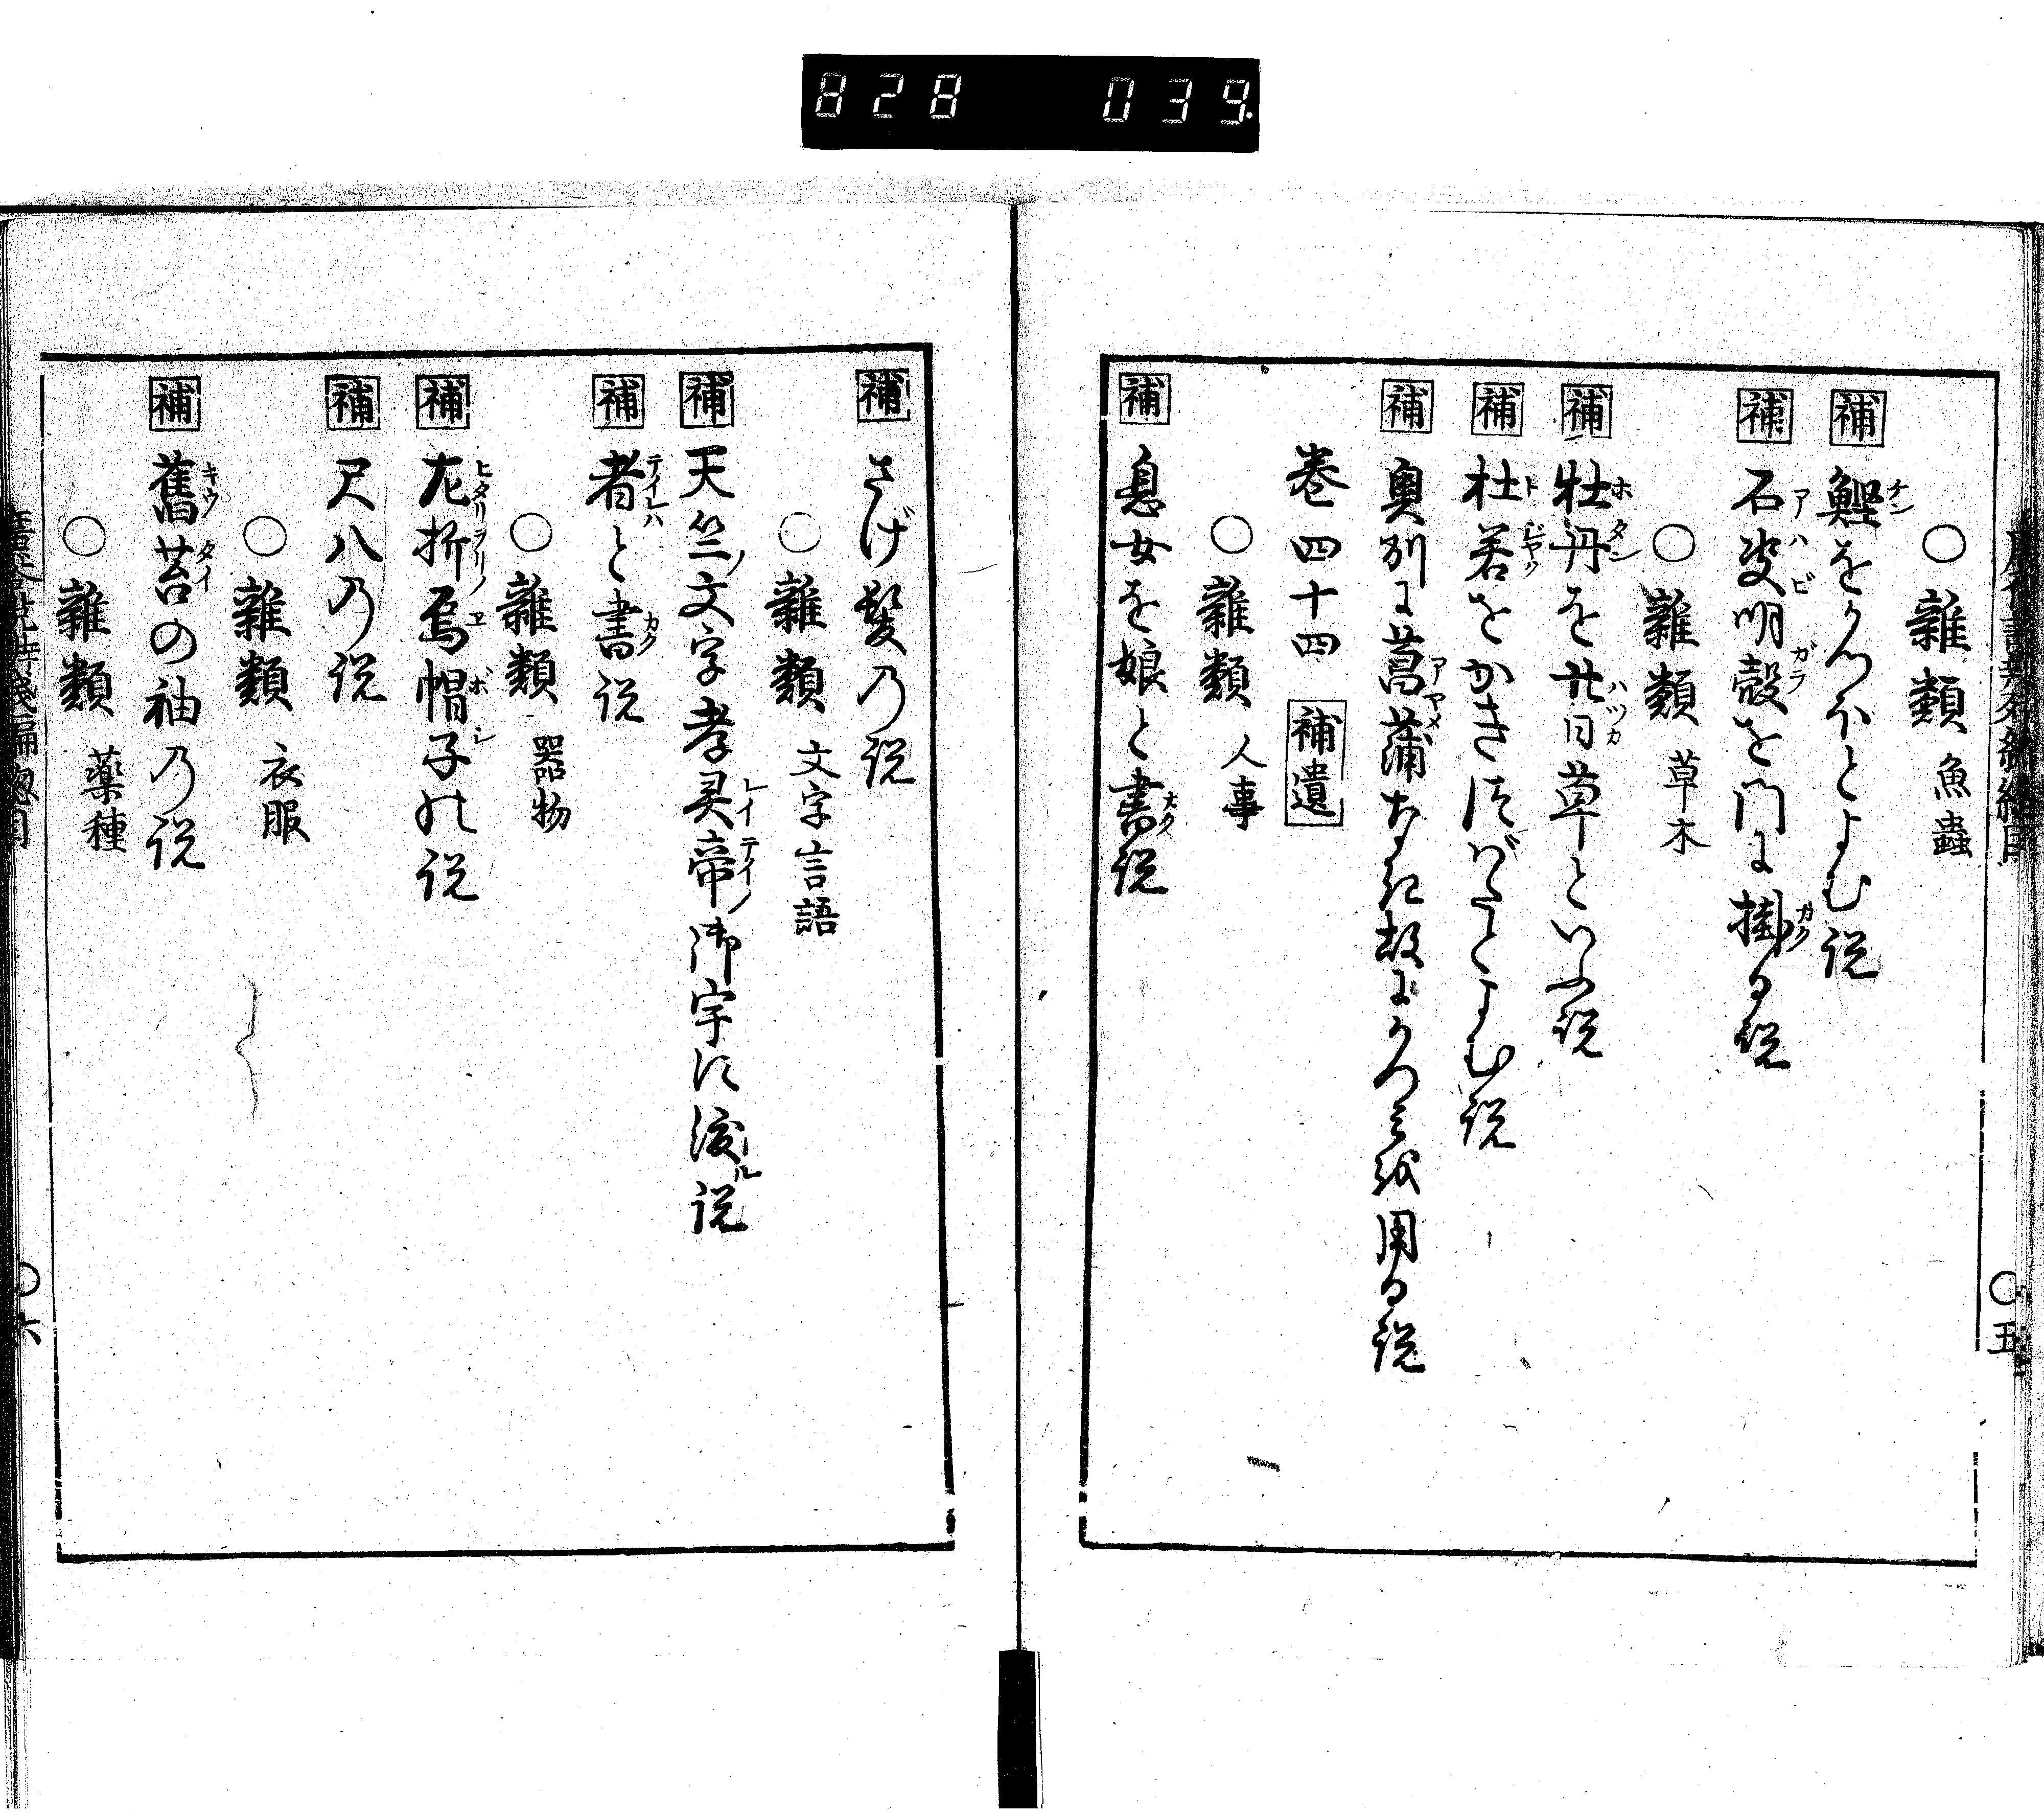 828 039
○雜類 魚蟲
補 鰹をかつほとよむ説
補 石决明殻を門に掛る説
○雜類 草木
補 牡丹を廿日草といふ説
補 杜若をかきつばたとよむ説
補 奥列に菖蒲なき故にかつみを用る説
巻四十四 補遺
○雜類 人事
補 息女を娘と書説
○五
補 さげ髪の説
○雜類 文字言語
補 天竺ノ文字孝灵帝ノ御宇に渡ル説
補 者と書説
○雜類 器物
補 左折烏帽子の説
補 尺八の説
○雜類 衣服
補 舊苔の袖の説
○雜類 藥種
○六